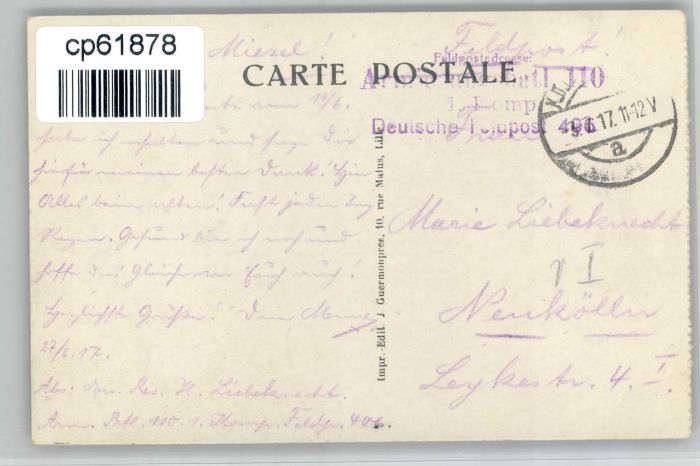 cp61878
Miezel!
Feldpost!
Feldpostadresse:
CARTE POSTALE
110
1. Komp.
Deutsche Feldpost 406
17. 11-12 V
a
vom 19/6.
habe ich erhalten und sage Dir
hierfür meinen besten Dank! Hier
Alles beim alten! Fast jeden Tag
Regen. Gesund bin ich noch und
hoffe das Gleiche von Euch auch!
Herzlichste Grüße! Dein
27/6.17.
Abs: Res. H. Liebeknecht.
Arm. Btl. 110. 1. Komp. Feldp. 406.
Impr.-Edit. J Guermonprez, 10, rue Malus,
Marie Liebeknecht
I
Neukölln
Leykestr. 4. I.